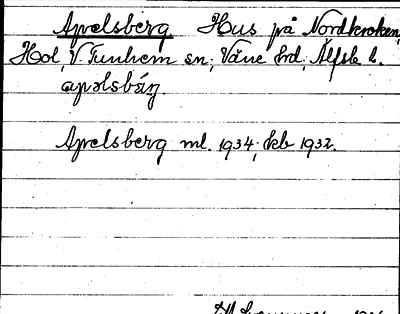 Apelsberg Hus på Nordkroken,
Hol, V. Tunhem sn, Väne hd, Älfsb l.
apəlsbärj
Apelsberg ml. 1934, kb 1932.